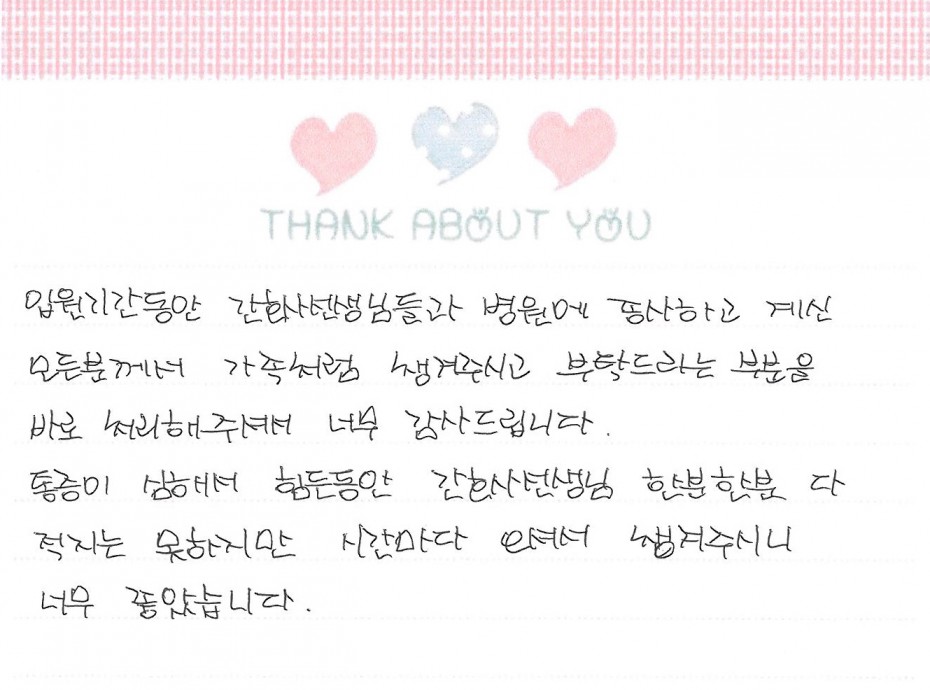 THANK ABOUT YOU
입원기간동안 간호사선생님들과 병원에 종사하고 계신
모든분께서 가족처럼 챙겨주시고 부탁드리는 부분을
바로 처리해주셔서 너무 감사드립니다.
통증이 심해서 힘든동안 간호사선생님 한분한분 다
적지는 못하지만 시간마다 오셔서 챙겨주시니
너무 좋았습니다.